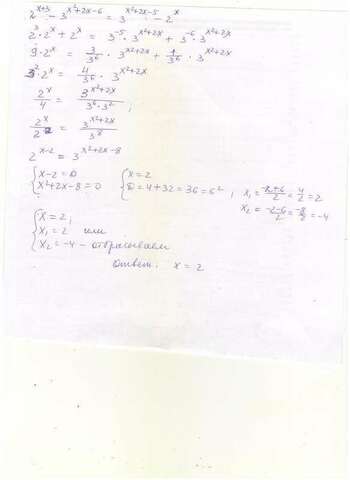 2^{x+3} - 3^{x²+2x-6} = 3^{x²+2x-5} - 2^x
2³·2^x + 2^x = 3^{-5}·3^{x²+2x} + 3^{-6}·3^{x²+2x}
9·2^x = 3/3⁶ · 3^{x²+2x} + 1/3⁶ · 3^{x²+2x}
3²·2^x = 4/3⁶ · 3^{x²+2x}
2^x/4 = 3^{x²+2x}/(3⁶·3²) ;
2^x/2² = 3^{x²+2x}/3⁸
2^{x-2} = 3^{x²+2x-8}
{x-2=0 {x=2
{x²+2x-8=0 {D=4+32=36=6² ; x₁ = (-2+6)/2 = 4/2 = 2
x₂ = (-2-6)/2 = -8/2 = -4
{x=2;
{x₁=2 или
{x₂=-4 - отбрасываем
Ответ: x=2